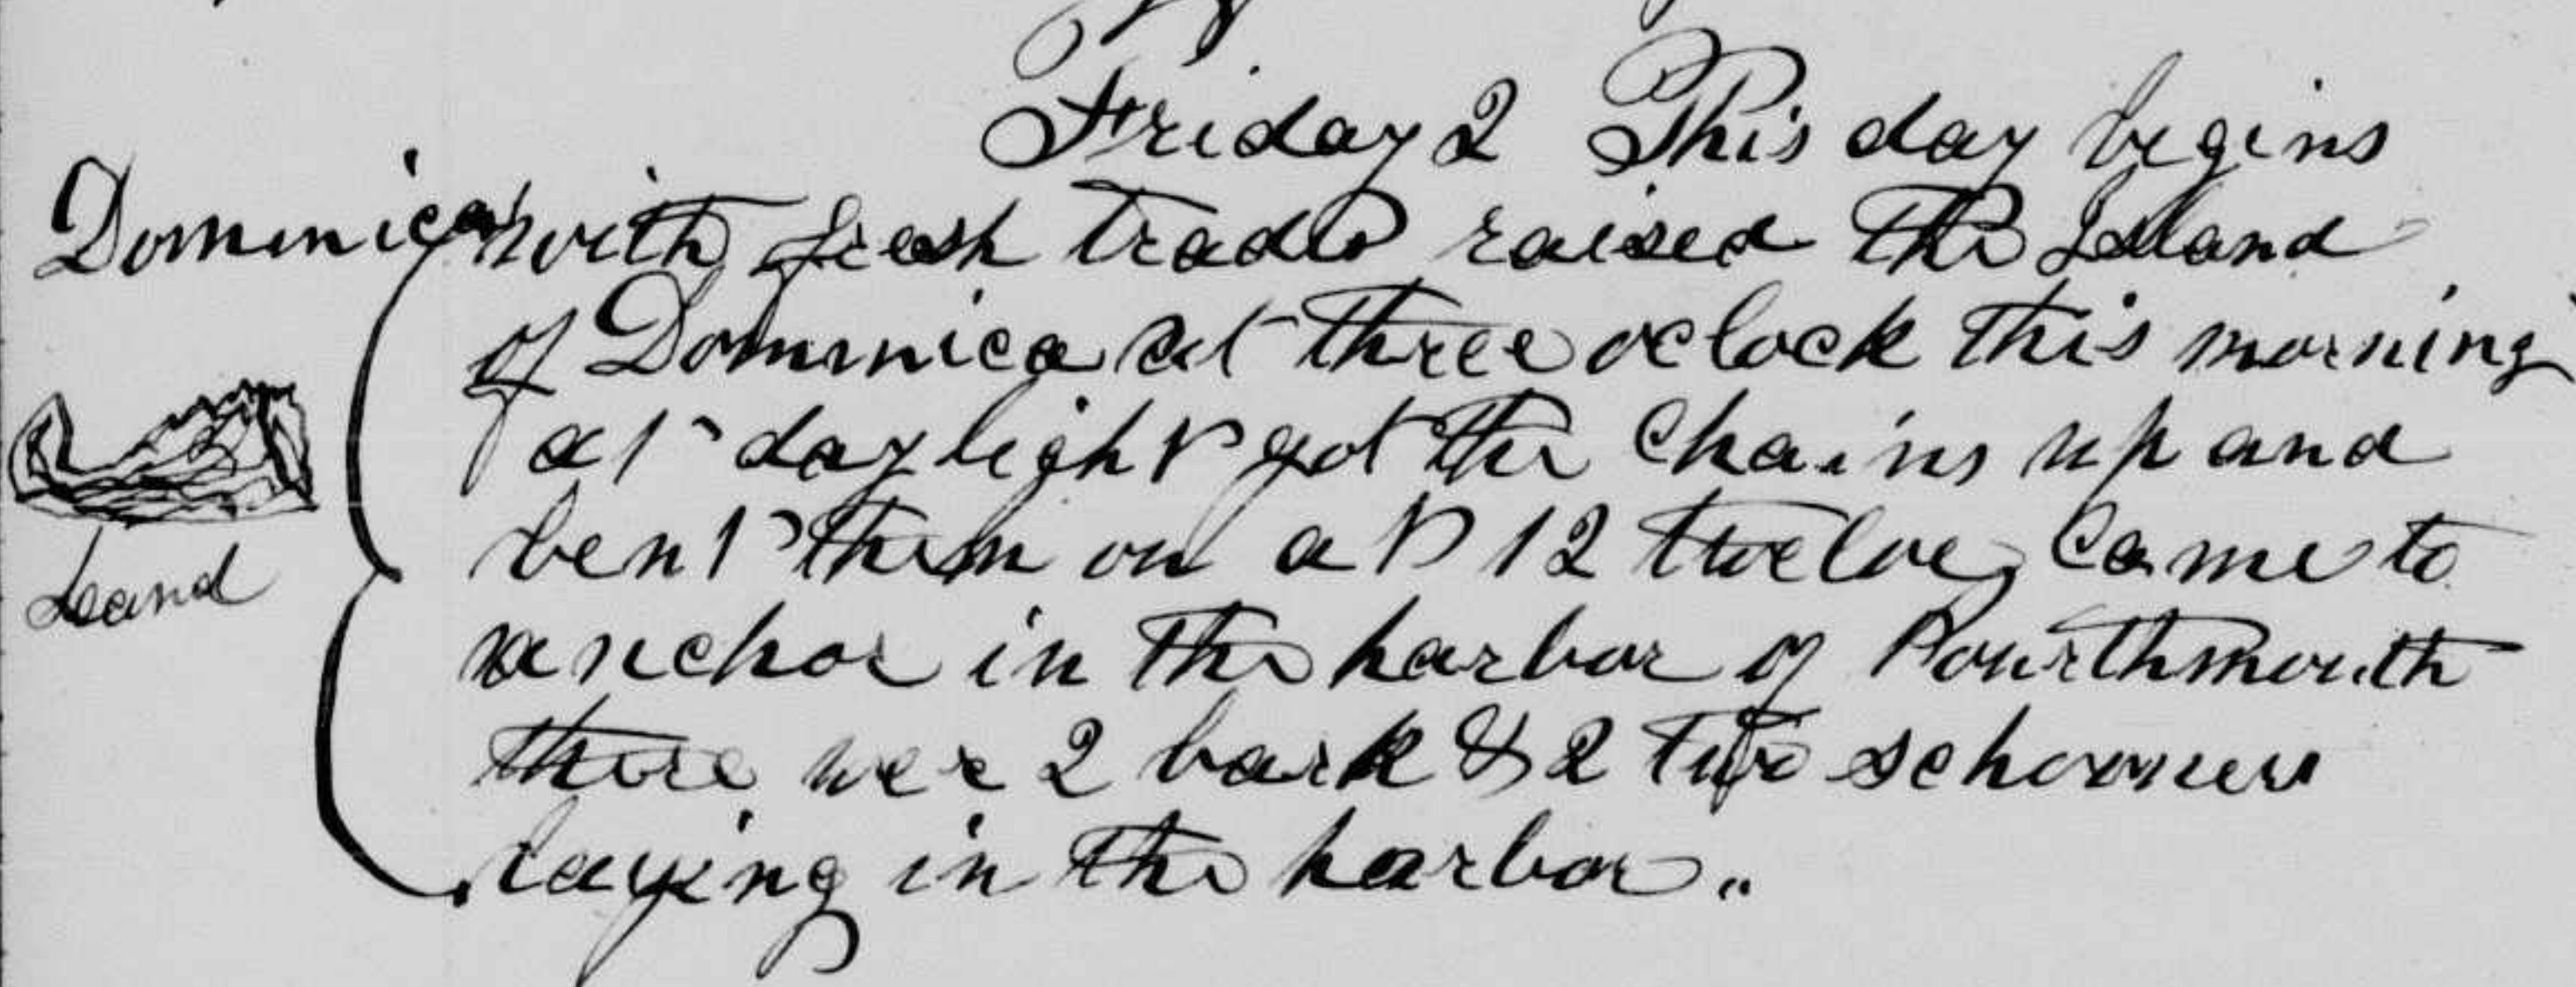 Friday 2 This day begins
Dominica with fresh trades raised the Island
of Dominica at three oclock this morning
at daylight got the chains up and
bent them on at 12 twelve came to
anchor in the harbor of Pourthmouth
Land
there wer 2 bark & 2 two schooners
laying in the harbor "